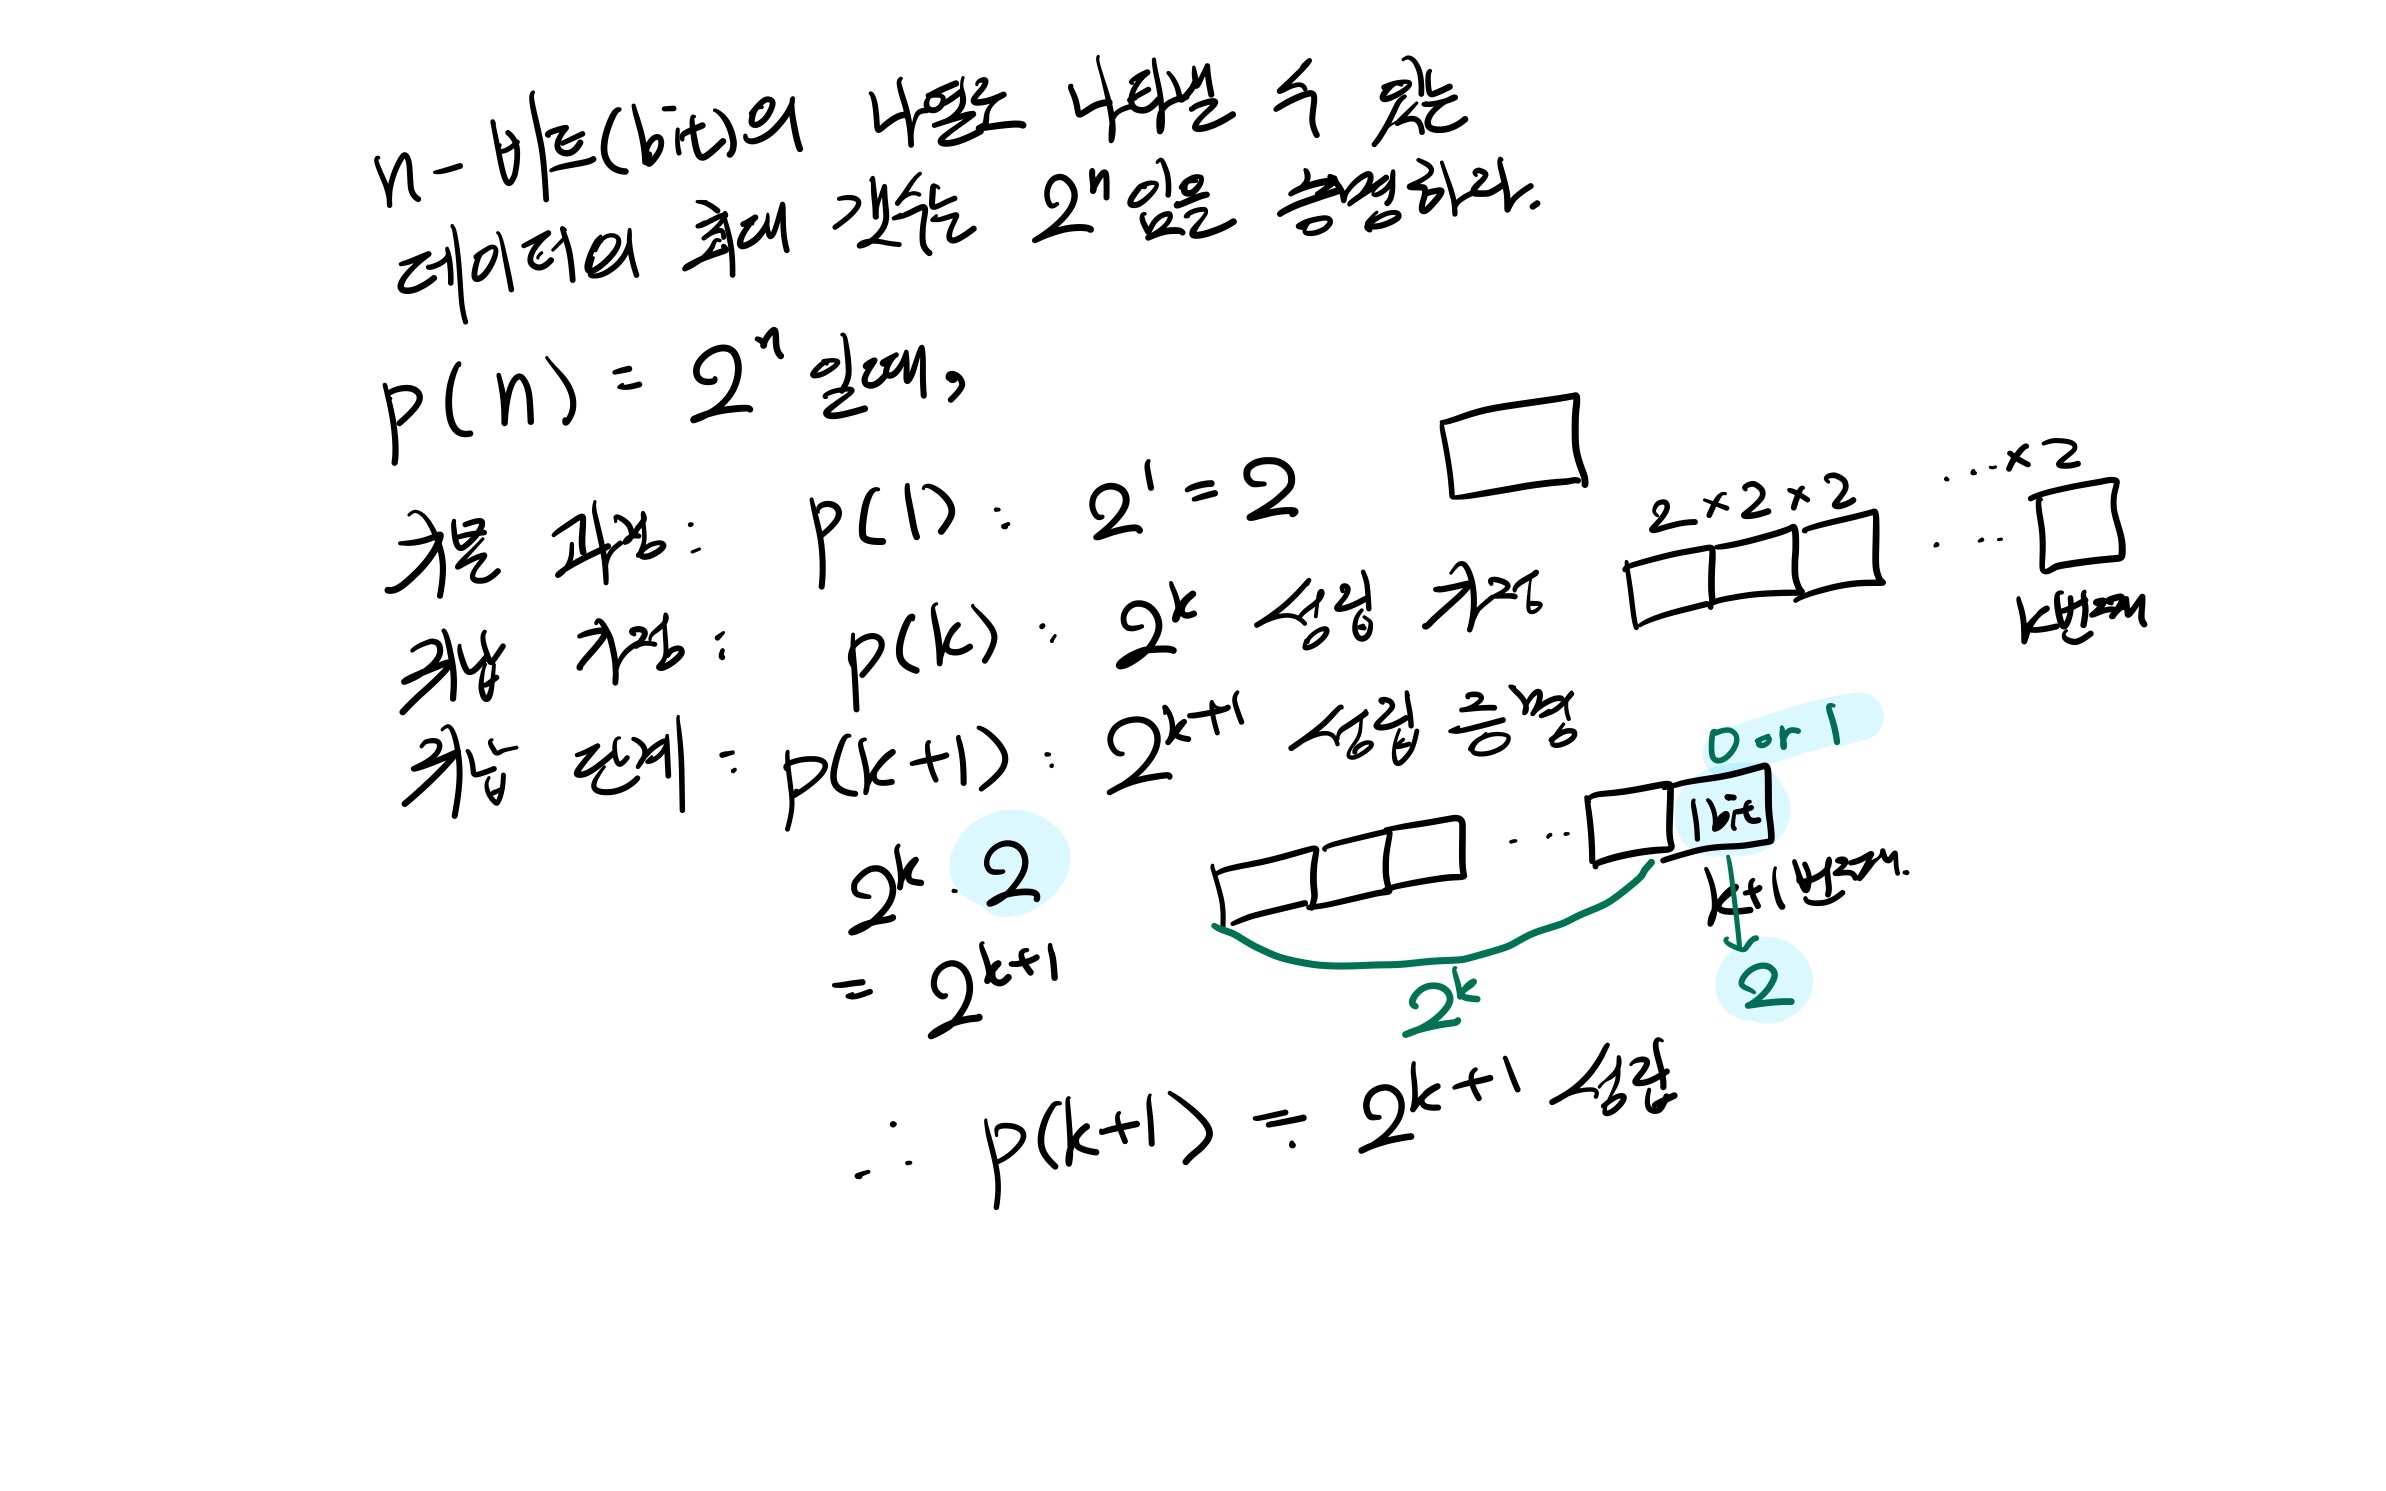 n-비트(bit)의 나열로 나타낼 수 있는
데이터의 최대 개수는 2ⁿ임을 증명하라.
p(n) = 2ⁿ 일 때,
기본 단계: p(1): 2¹ = 2
귀납 가정: p(k): 2ᵏ 성립 가정
2 × 2 × 2 ... × 2
... k번째
귀납 단계: p(k+1): 2ᵏ⁺¹ 성립 증명
0 or 1
2ᵏ · 2
... 1bit
k+1번째.
= 2ᵏ⁺¹
2ᵏ
2
∴ p(k+1) = 2ᵏ⁺¹ 성립